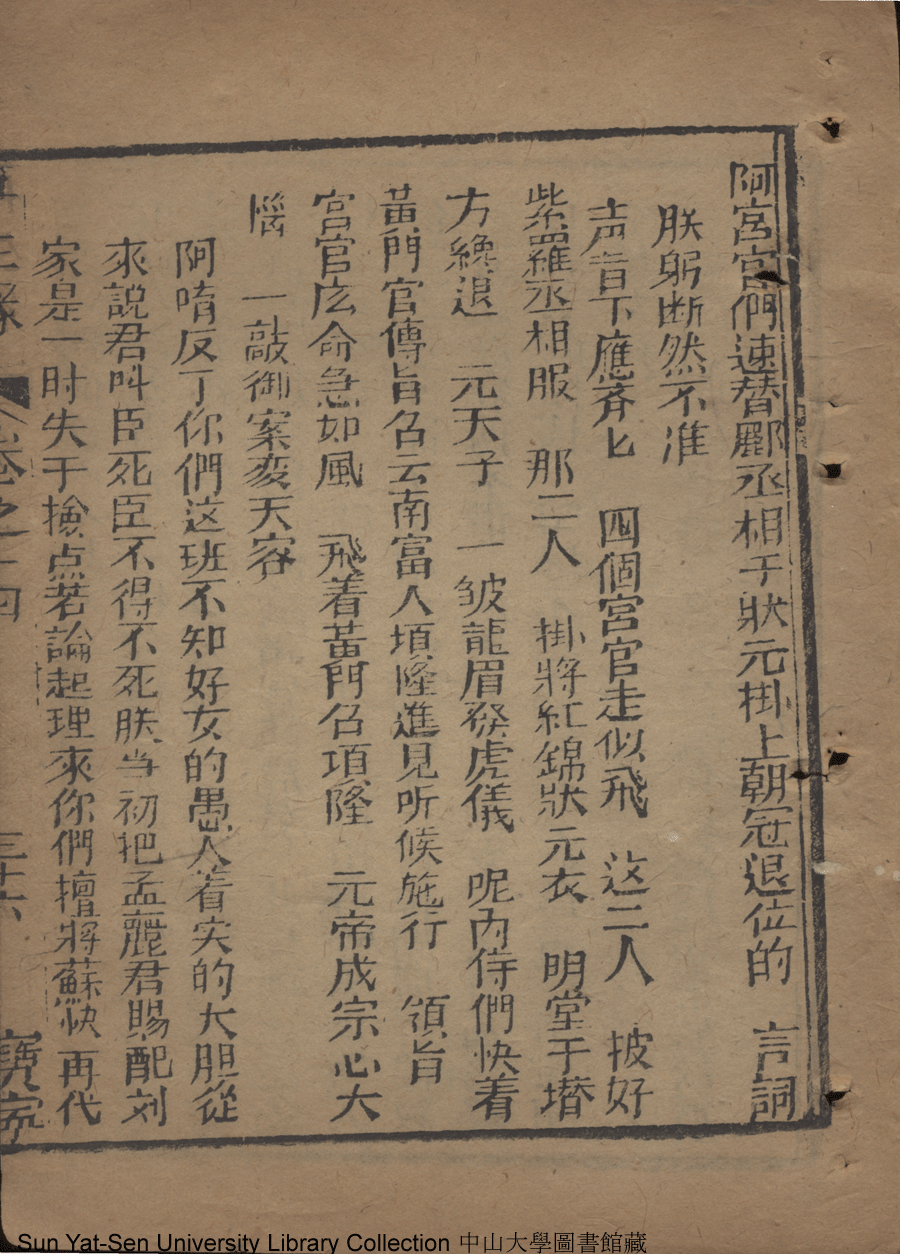 阿宮官們速替酈丞相于狀元掛上朝冠退位的 言詞
朕躬断然不准
声音下應斉匕 四個宮官走似飛 这二人 披好
紫羅丞相服 那二人 掛將紅錦狀元衣 明堂于壻
方纔退 元天子 一皱龍眉發虎儀 呢內侍們快着
黃門官傳旨召云南富人項隆進見听候施行 領旨
宮官庅命急如風 飛着黃門召項隆 元帝成宗心大
惱 一敲御案変天容
阿唷反了你們这班不知好歹的愚人着实的大胆從
來說君叫臣死臣不得不死朕当初把孟麗君賜配刘
家是一时失于撿点若論起理來你們擅將蘇快再代
卷之十四 三十六
Sun Yat-Sen University Library Collection 中山大學圖書館藏